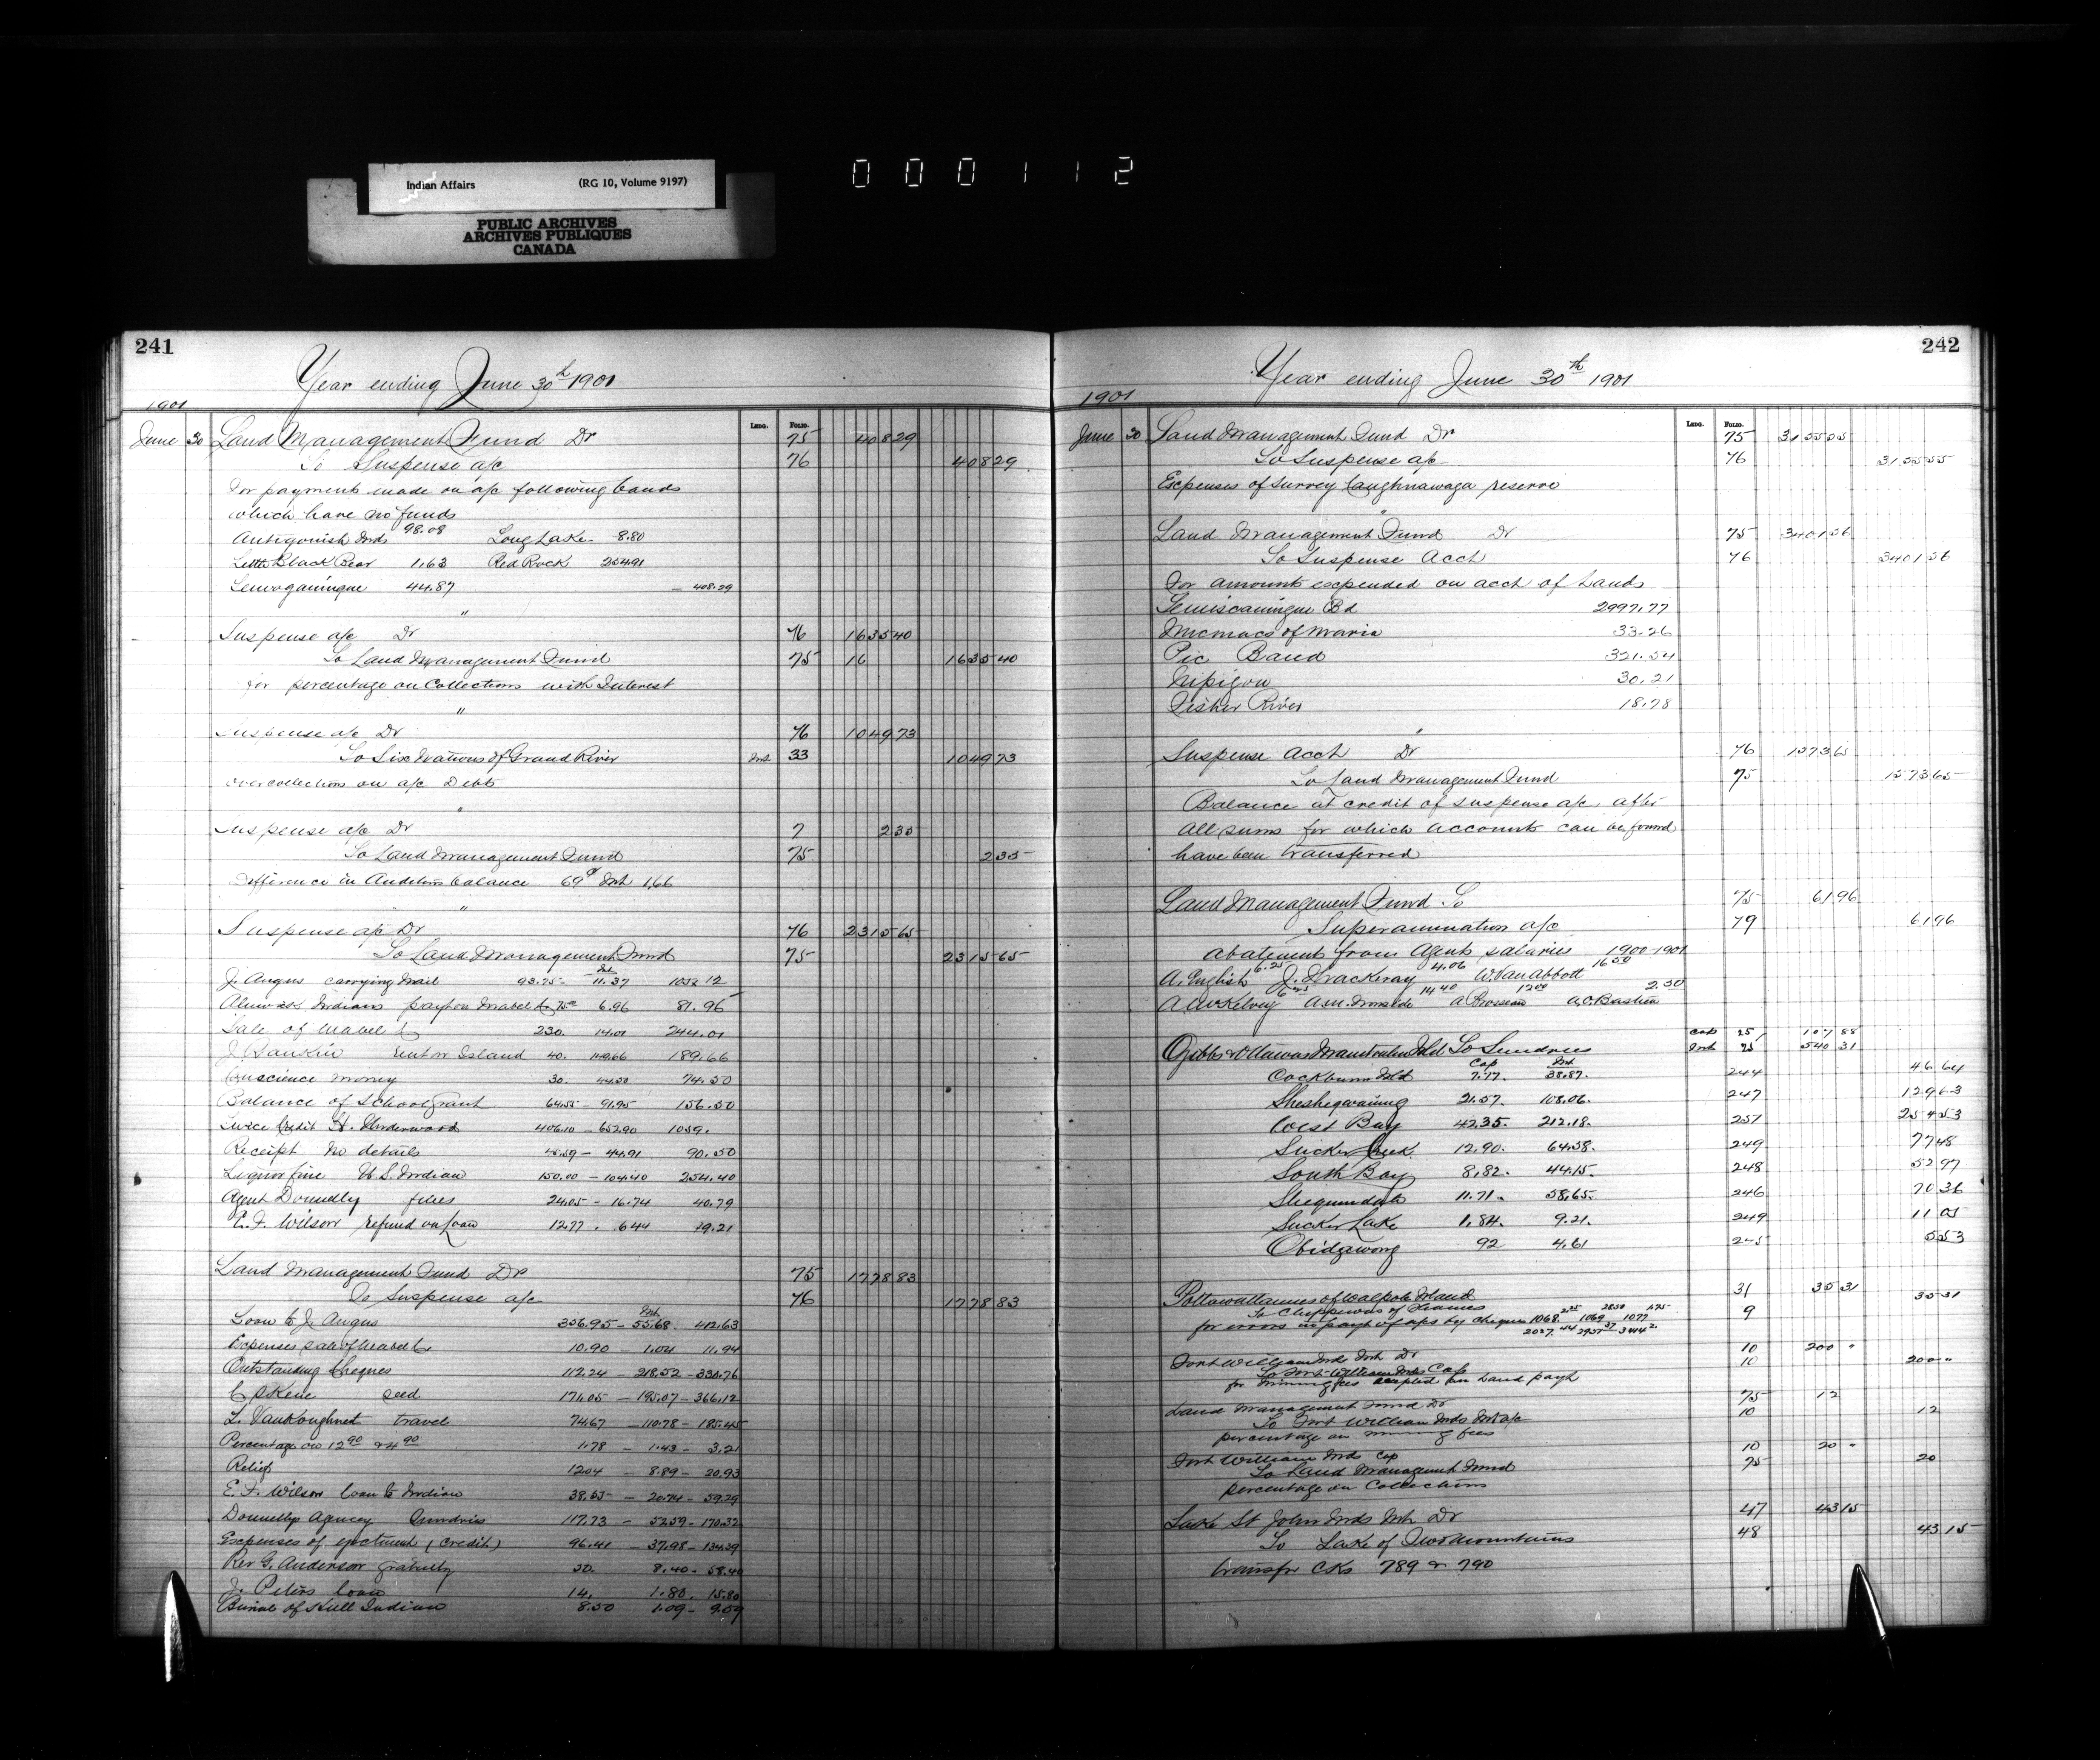 Indian Affairs (RG 10, Volume 9197)
PUBLIC ARCHIVES
ARCHIVES PUBLIQUES
CANADA
000112
241
Year ending June 30th 1901
1901
Ledg. Folio.
June 30 Land Management Fund Dr 75 408 29
To Suspense a/c 76 408 29
For payments made on a/c following bands
which have no funds
Antigonish Inds 98.08 Long Lake 8.80
Little Black Bear 1.63 Red Rock 254.91
44.87 — 408.29
"
Suspense a/c Dr 76 1635 40
To Land Management Fund 75 16 1635 40
for percentage on Collections with Interest
"
Suspense a/c Dr 76 1049 73
To Six Nations of Grand River Int. 33 1049 73
overcollection on a/c Debts
"
Suspense a/c Dr 7 2 35
To Land Management Fund 75 2 35
Difference in Auditors balance 69¢ Int 1.66
"
Suspense a/c Dr 76 2315 65
To Land Management Fund 75 2315 65
Int
J. Angus carrying mail 93.75 — 11.37
Indians pay on Mabel L 75.00 6.96 81.96
Sale of Mabel L 230. 14.01 244.01
J Rankin rent on Island 40. 149.66 189.66
Conscience money 30. 44.50 74.50
Balance of School Grant 64.55 — 91.95 156.50
Twice Credit H. Underwood 406.10 — 652.90 1059.
Receipt no details 45.59 — 44.91 90.50
Liquor fine U.S. Indian 150.00 — 104.40 254.40
Agent Donnelly fines 24.05 — 16.74 40.79
E. F. Wilson refund on Loan 12.77 . 6.44 19.21
Land Management Fund Dr 75 1778 83
To Suspense a/c 76 1778 83
Int
Loan to J. Angus 356.95 — 55.68 412.63
Expenses sale of Mabel L 10.90 — 1.04 11.94
Outstanding Cheques 112.24 — 218.52 — 330.76
C Skene seed 171.05 — 195.07 — 366.12
L. VanKoughnet travel 74.67 — 110.78 — 185.45
Percentage on 12.90 & 4.90 1.78 — 1.43 — 3.21
Relief 12.04 — 8.89 — 20.93
E. F. Wilson loan to Indian 38.55 — 20.74 — 59.29
Donnelly Agency Sundries 117.73 — 52.59 — 170.32
Expenses of ejectment (Credit) 96.41 — 37.98 — 134.39
Rev G. Anderson gratuity 50. 8.40 — 58.40
J. Peters loan 14. 1.80. 15.80
Burial of Indian 8.50 1.09 — 9.59
242
Year ending June 30th 1901
1901
Ledg. Folio.
June 30 Land Management Fund Dr 75 3155 55
To Suspense a/c 76 3155 55
Expenses of Survey Caughnawaga reserve
"
Land Management Fund Dr 75 3401 56
To Suspense Acct 76 3401 56
For amounts expended on acct of bands
Temiscamingue Bd 2997.77
Micmacs of Maria 33.26
Pic Band 321.54
Nipigon 30.21
Fisher River 18.78
"
Suspense Acct Dr 76 1573 65
To Land Management Fund 75 1573 65
Balance at credit of suspense a/c, after
all sums for which accounts can be found
have been transferred
Land Management Fund To 75 61 96
Superannuation a/c 79 61 96
abatement from Agents salaries 1900-1901
A. English 6.25 J. Thackeray 4.06 W. Van Abbott 16.50
A McKelvey 14.40 A Brosseau 12.00 A.O. Bastien 2.50
Ojibbs & Ottawas Manitoulin Isld To Sundries Cap 25 107 88
Int 25 540 31
Cap Int
Cockburn Isld 7.77. 38.87. 244 46 64
Sheshegwaning 21.57. 108.06. 247 129 63
West Bay 42.35. 212.18. 257 254 53
Sucker Creek 12.90. 64.58. 249 77 48
South Bay 8.82. 44.15. 248 52 97
Sheguindah 11.71. 58.65. 246 70 36
Sucker Lake 1.84. 9.21. 249 11 05
Obidgwong 92 4.61 245 5 53
Pottawattamies of Walpole Island 31 35 31
To Chippewas of Thames 9 35 31
for errors in payt of a/cs by cheques 1068 1069 1077
Fort William Inds Int Dr 10 200 "
To Fort William Inds Cap 10 200 "
for mining fees on Land payt
Land Management Fund Dr 75 12
To Fort William Inds Int a/c 10 12
percentage on mining fees
Fort William Ind Cap 10 20 "
To Land Management Fund 75 20
percentage on Collections
Lake St John Inds Int Dr 47 43 15
To Lake of Two Mountains 48 43 15
transfr Cks 789 & 790